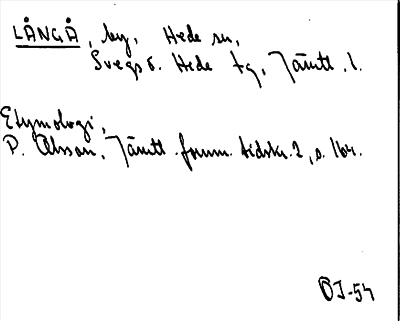 LÅNGÅ, by, Hede sn,
Svegs o. Hede tg, Jämtl. l.
Etymologi,
P. Olsson, Jämtl. fornm. tidskr. 2, s. 164.
OJ-54